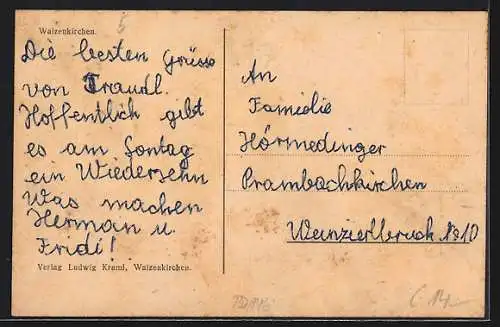 Waizenkirchen.
5
Die besten Grüsse
von Traudl.
Hoffentlich gibt
es am Sontag
ein Wiedersehn
Was machen
Herman u.
Fridi!
Verlag Ludwig Kraml, Waizenkirchen.
An
Familie
Hörmedinger
Prambachkirchen
Weinzierlbruck No 10
C 14.-